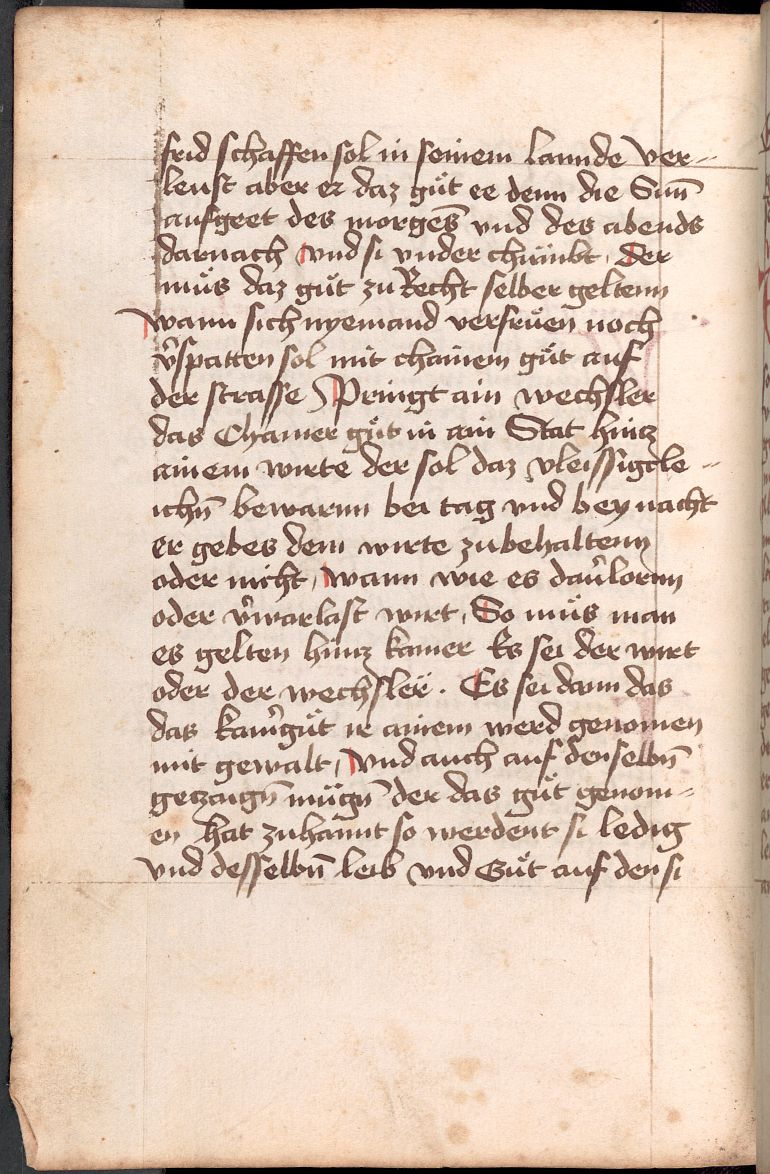 frid schaffen sol in seinem lannde ver-
leust aber er daz guͤt ee denn die Sun̄
aufgeet des morgens̄ vnd des abends
darnach vnd si vnder chumbt. Der
muͤs daz guͤt zu Recht selber geltenn
wann sich nyemand verfruͤen̄ noch
v̄spatten sol mit chainem guͤt auf
der strasse Pringt ain wechsler
das Chamer guͤt in ain Stat hincz
ainem wirte der sol daz vleissigcle-
ichn̄ bewarnn bei tag vnd bey nacht
er gebes dem wirte zubehaltenn
oder nicht, wann wie es dav̄lornn
oder v̄warlast wirt, So muͤs man
es gelten hincz kamer Es sei der wirt
oder der wechsler. Es sei dann das
das kam̄guͤt ir ainem werd genomen
mit gewalt, vnd auch auf denselbn̄
geczaugn̄ muͤgn̄ der das guͤt genom-
en hat zuhannt so werdent si ledig
vnd desselbn̄ leib vnd Guͤt auf den si